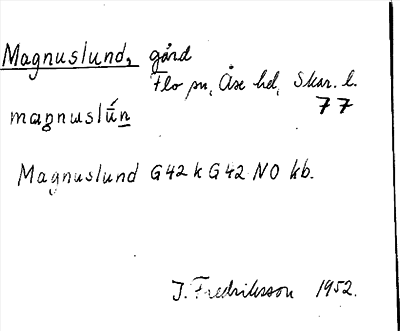 Magnuslund, gård
Flo sn, Åse hd, Skar. l.
77
magnuslú̄n̲
Magnuslund G42 k G42 NO kb.
I. Fredriksson 1952.